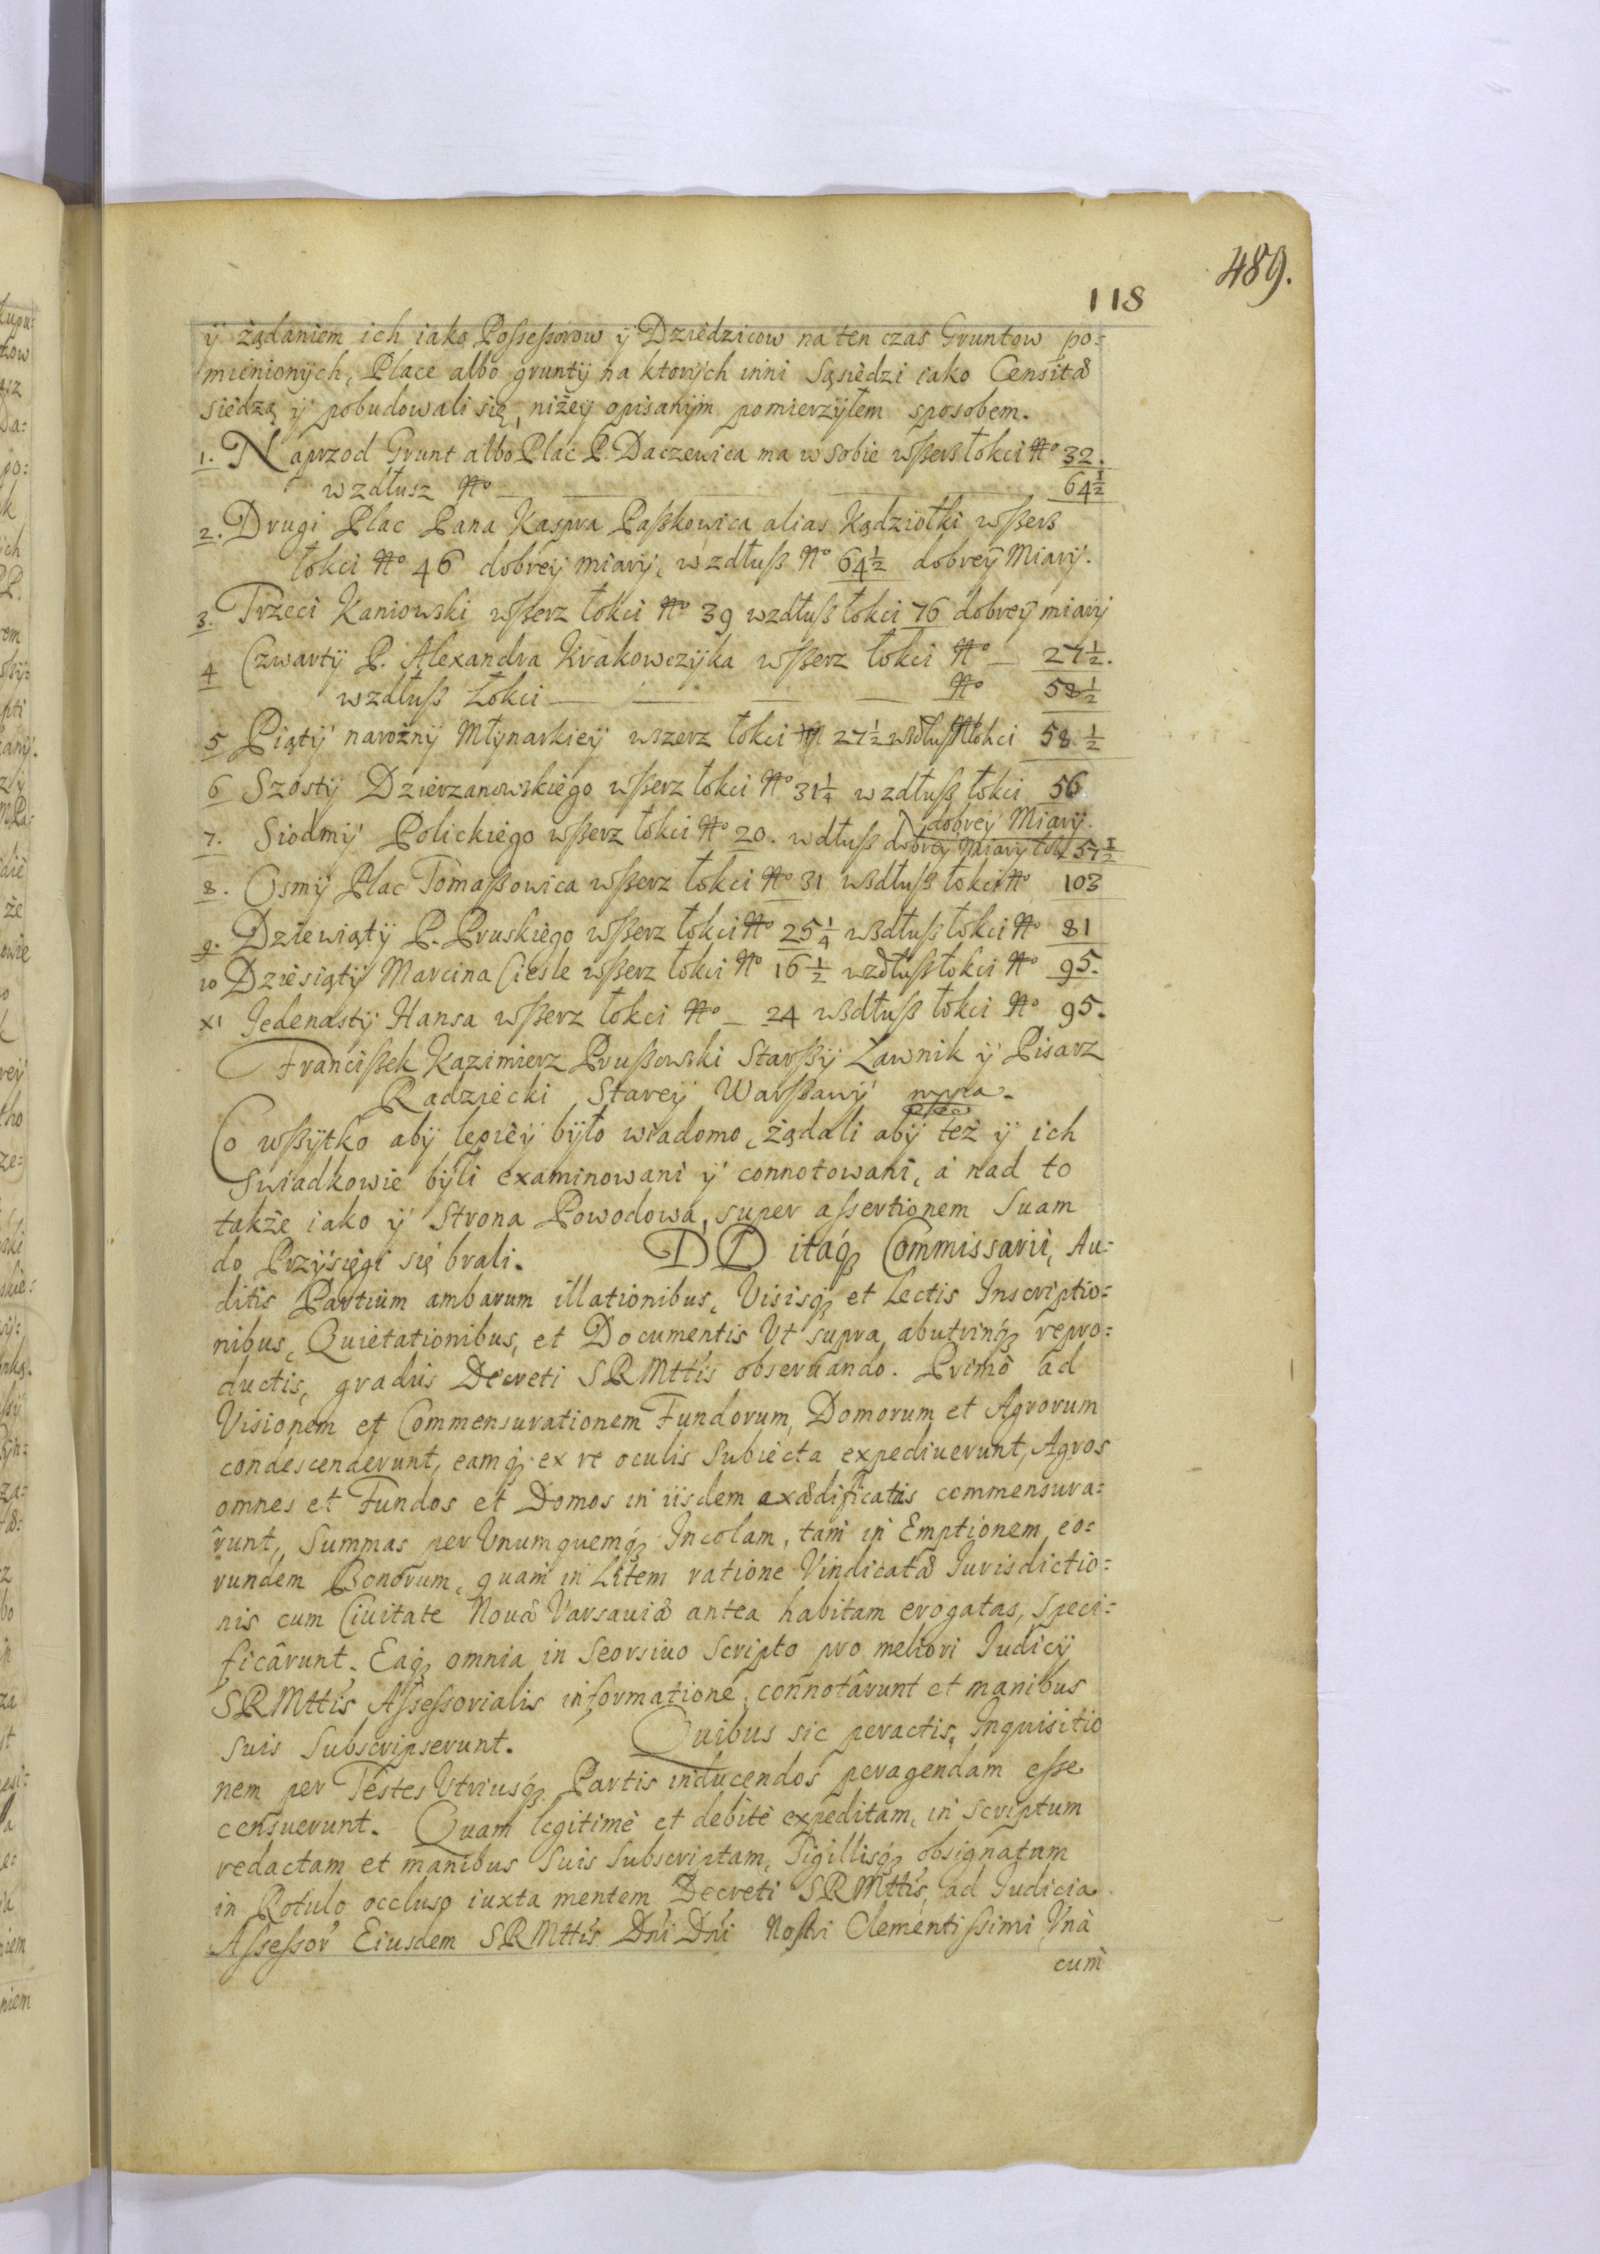 489.
118
ÿ żądaniem ich iako Poſseſsorow ÿ Dziedzicow na ten czas Gruntow po:
mienionÿch, Place albo gruntÿ na ktorÿch inni Sąsiedzi iako Censitæ
siedzą ÿ pobudowali się, niżeÿ opisanÿm pomierzÿłem sposobem.
1. Naprzod Grunt albo Plac P. Daczewica ma w sobie wſzersz łokci No 32.
wzdłusz No 64½
2. Drugi Plac Pana Kaspra Paſzkowica alias Kądziołki wſzersz
łokci No 46 dobreÿ miarÿ, wzdłuſz No 64½ dobreÿ Miarÿ.
3. Trzeci Kaniowski wſzerz łokci No 39 wzdłuſz łokci 76 dobreÿ miarÿ
4 Czwartÿ P. Alexandra Krakowczÿka wſzerz łokci No 27½.
wzdłuſz Łokci No 58½
5 Piątÿ narożnÿ Młÿnarkieÿ wszerz łokci 27½ wzdłuſz łokci 58½
6 Szóstÿ Dzierzanowskiego wſzerz łokci No 31¼ wzdłuſz łokci 56
dobreÿ Miarÿ.
7. Siodmÿ Polickiego wſzerz łokci No 20. wdłuſz dobreÿ Miarÿ łok 57½
8. Osmÿ Plac Tomaſzowica wſzerz łokci No 31 wzdłuſz łokci No 103
9. Dziewiątÿ P. Pruskiego wſzerz łokci No 25¼ wzdłuſz łokci No 81
10 Dziesiątÿ Marcina Ciesle wſzerz łokci No 16½ wzdłuſz łokci No 95.
XI Jedenastÿ Hansa wſzerz łokci No 24 wzdłuſz łokci No 95.
Franciſzek Kazimierz Pruſzowski Starſzÿ Ławnik ÿ Pisarz
Radziecki Stareÿ Warſzawÿ mpra.
Co wſzÿtko abÿ lepieÿ bÿło wiadomo, żądali abÿ też ÿ ich
Swiadkowie bÿli examinowani ÿ connotowani, a nad to
także iako ÿ Strona Powodowa, super aſsertionem Suam
do Przÿsięgi się brali. DD itaq́ Commissarii, Au:
ditis Partium ambarum illationibus, Visisq́ et Lectis Inscriptio:
nibus, Quietationibus, et Documentis Ut supra abutrinq́ repro:
ductis, gradus Decreti SRMttis obseruando. Primò ad
Visionem et Commensurationem Fundorum, Domorum et Agrorum
condescenderunt, eamq́ ex re oculis Subiecta expediuerunt, Agros
omnes et Fundos et Domos in iisdem exædificatas commensura:
runt, Summas per Unumquemq́ Incolam, tam in Emptionem eo:
rundem Bonorum, quam in Litem ratione Vindicatæ Jurisdictio:
nis cum Ciuitate Nouæ Varsauiæ antea habitam erogatas, speci:
ficârunt. Eaq́ omnia in Seorsiuo Scripto pro meliori Judicÿ
SRMttis Aſseſsorialis informatione, connotârunt et manibus
Suis Subscripserunt. Quibus sic peractis, Inquisitio
nem per Testes Utriusq́ Partis inducendos peragendam eſse
censuerunt. Quam legitimè et debitè expeditam, in Scriptum
redactam et manibus Suis Subscriptam, Sigillisq́ obsignatam
in Rotulo occluso iuxta mentem Decreti SRMttis, ad Judicia
Aſseſsor Eiusdem SRMttis Dni Dni Nostri Clementiſsimi Unà
cum